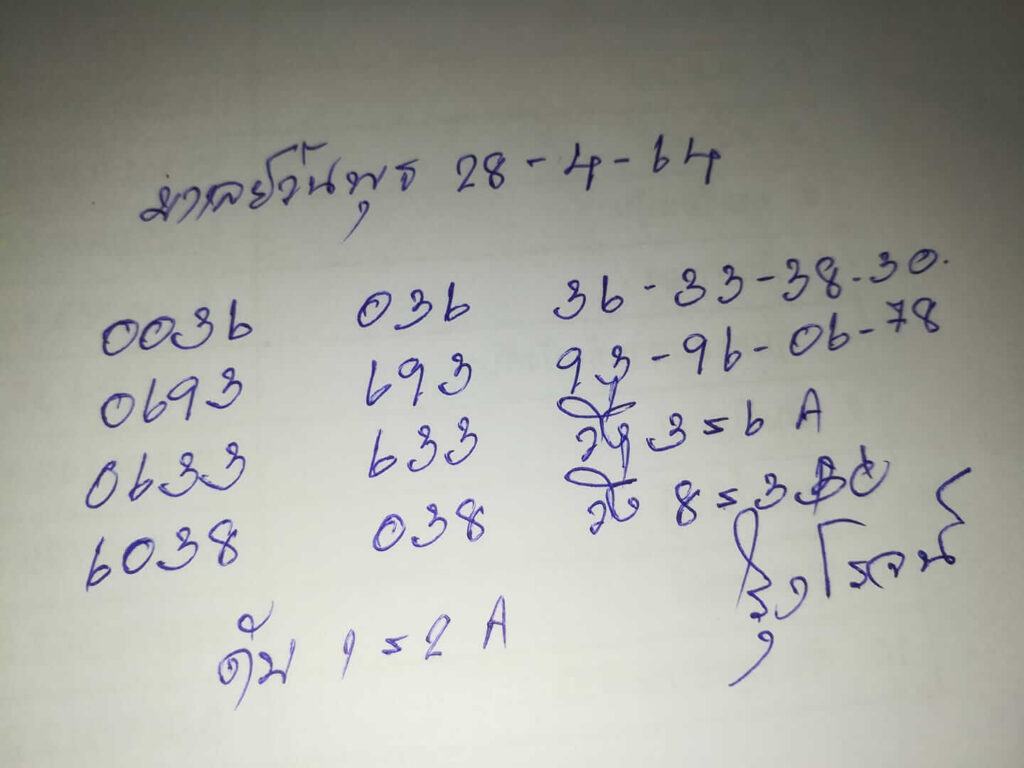 มาเลย์วันพุธ 28-4-64
0036 036 36-33-38-30.
0693 693 93-96-06-78
0633 633 วิ่ง 3=6 A
6038 038 วิ่ง 8=3
ดับ 1=2 A
รุ่งโรจน์